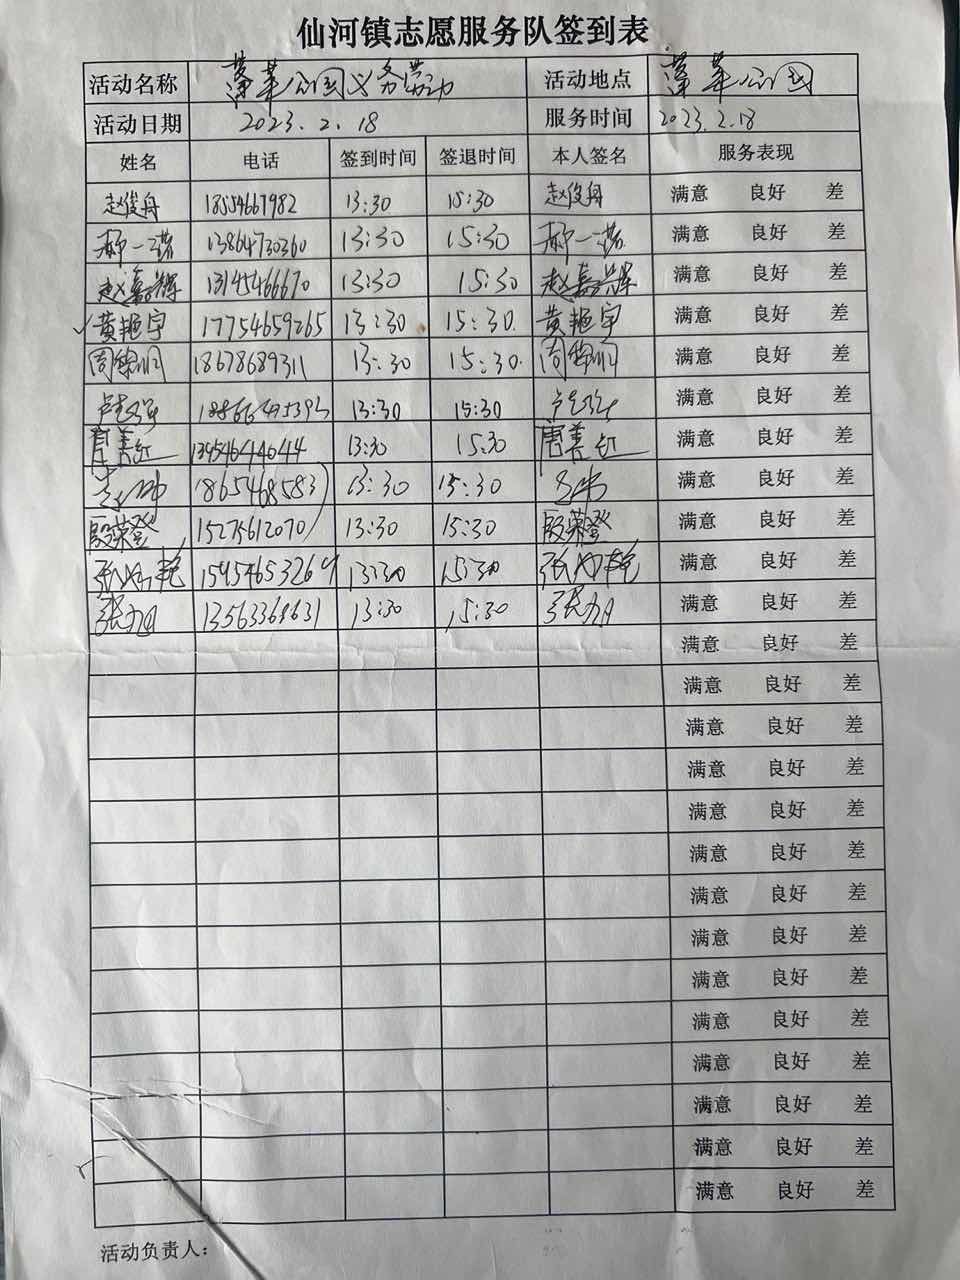 仙河镇志愿服务队签到表
活动名称 蓬莱公园义务劳动 活动地点 蓬莱公园
活动日期 2023.2.18 服务时间 2023.2.18
姓名 电话 签到时间 签退时间 本人签名 服务表现
赵俊舟 18554667982 13:30 15:30 赵俊舟 满意 良好 差
郝一诺 13864730360 13:30 15:30 郝一诺 满意 良好 差
赵嘉辉 13145466670 13:30 15:30 赵嘉辉 满意 良好 差
黄艳宇 17754659265 13:30 15:30. 黄艳宇 满意 良好 差
周 18678689311 13:30 15:30. 周 满意 良好 差
卢 13:30 15:30 卢 满意 良好 差
唐美红 13954644644 13:30 15:30 唐美红 满意 良好 差
13:30 15:30 满意 良好 差
殷荣登 15275612070 13:30 15:30 殷荣登 满意 良好 差
张 艳 15954653269 13:30 15:30 张 艳 满意 良好 差
张 13563368631 13:30 15:30 张 满意 良好 差
满意 良好 差
满意 良好 差
满意 良好 差
满意 良好 差
满意 良好 差
满意 良好 差
满意 良好 差
满意 良好 差
满意 良好 差
满意 良好 差
满意 良好 差
满意 良好 差
满意 良好 差
满意 良好 差
活动负责人：